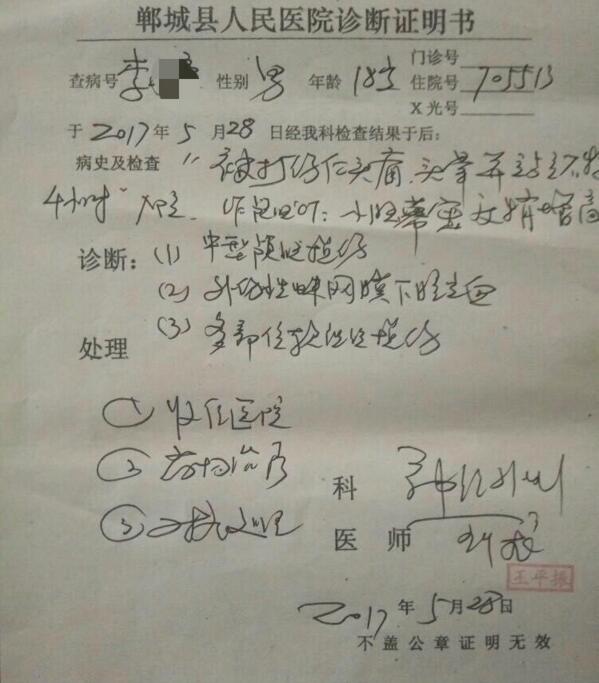 郸城县人民医院诊断证明书
门诊号
查病号 李 性别 男 年龄 18岁 住院号 705513
X光号
于 2017 年 5 月 28 日经我科检查结果于后:
病史及检查 "被打伤后头痛、头晕并
4小时"入院.
诊断: (1) 中型颅脑损伤
(2) 外伤性蛛网膜下腔出血
(3) 多部位软组织损伤
处理
① 收住医院
② 药物治疗
③
科 神经外科
医师
王平振
2017 年 5 月 28 日
不盖公章证明无效